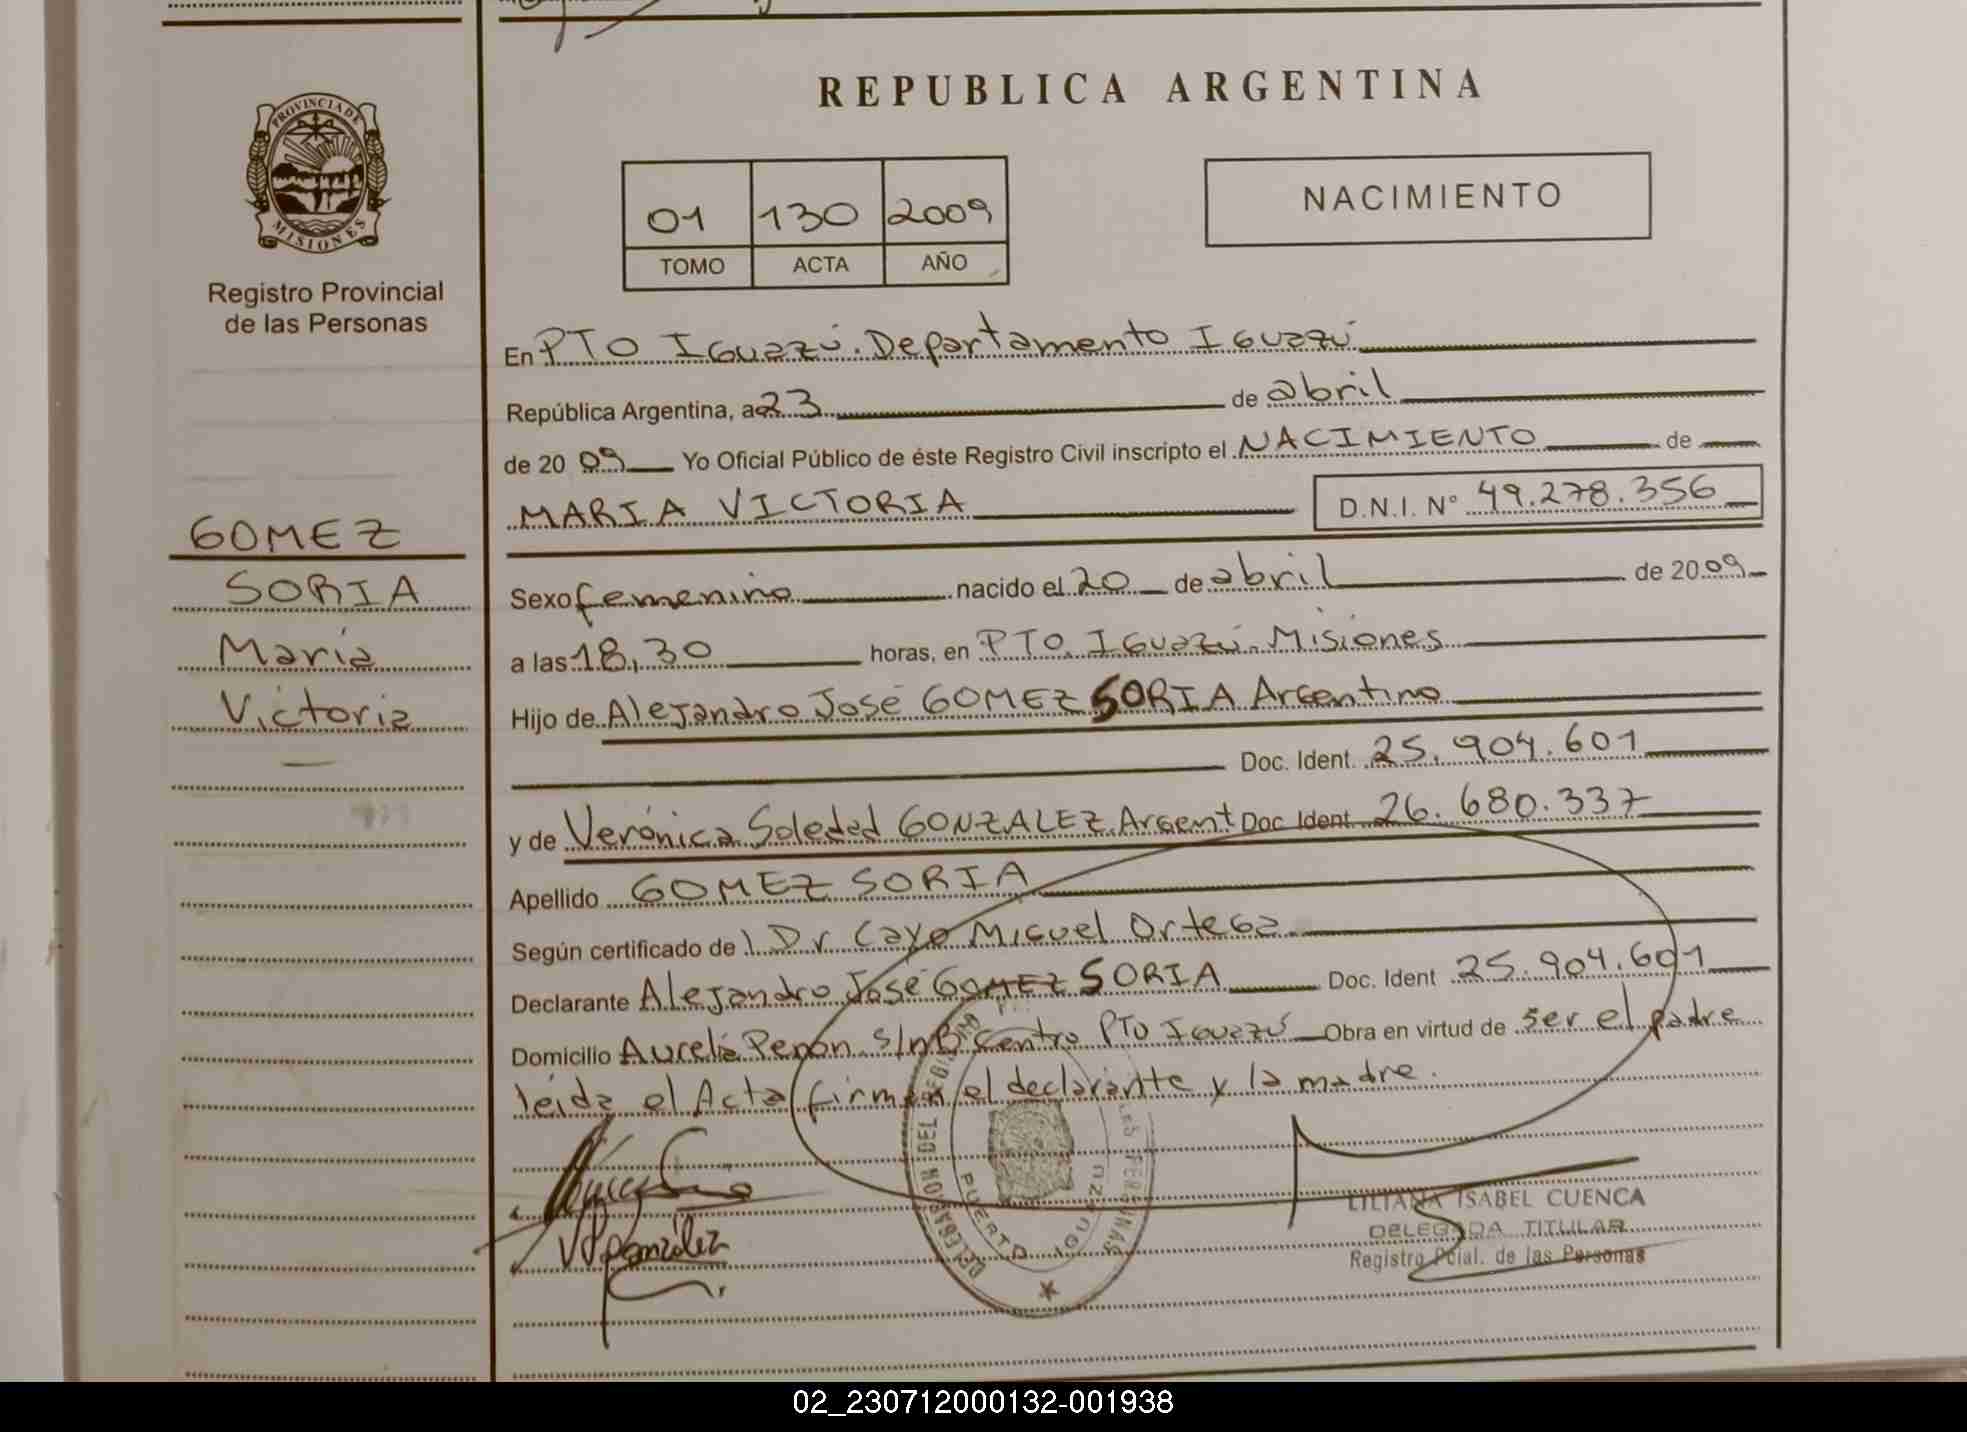 REPUBLICA ARGENTINA
PROVINCIA DE
MISIONES
Registro Provincial
de las Personas
01 130 2009
TOMO ACTA AÑO
NACIMIENTO
En PTO IGUAZÚ. Departamento IGUAZÚ
República Argentina, a 23 de abril
de 20 09 Yo Oficial Público de éste Registro Civil inscripto el NACIMIENTO de
MARIA VICTORIA D.N.I. N° 49.278.356
GOMEZ
SORIA
María
Victoria
Sexo femenino nacido el 20 de abril de 20 09
a las 18,30 horas, en PTO. IGUAZÚ. Misiones
Hijo de Alejandro José GOMEZ SORIA Argentino
Doc. Ident. 25.904.601
y de Verónica Soledad GONZALEZ Argent Doc Ident 26.680.337
Apellido GOMEZ SORIA
Según certificado de Dr Cayo Miguel Ortega
Declarante Alejandro José GOMEZ SORIA Doc. Ident 25.904.601
Domicilio Aurelia Penón S/n Bº Centro PTO IGUAZÚ Obra en virtud de ser el padre
leída el Acta firman el declarante y la madre.
V S Gonzalez
DELEGACION DEL REGISTRO
LAS PERSONAS
PUERTO IGUAZU
LILIANA ISABEL CUENCA
DELEGADA TITULAR
Registro Pcial. de las Personas
02_230712000132-001938